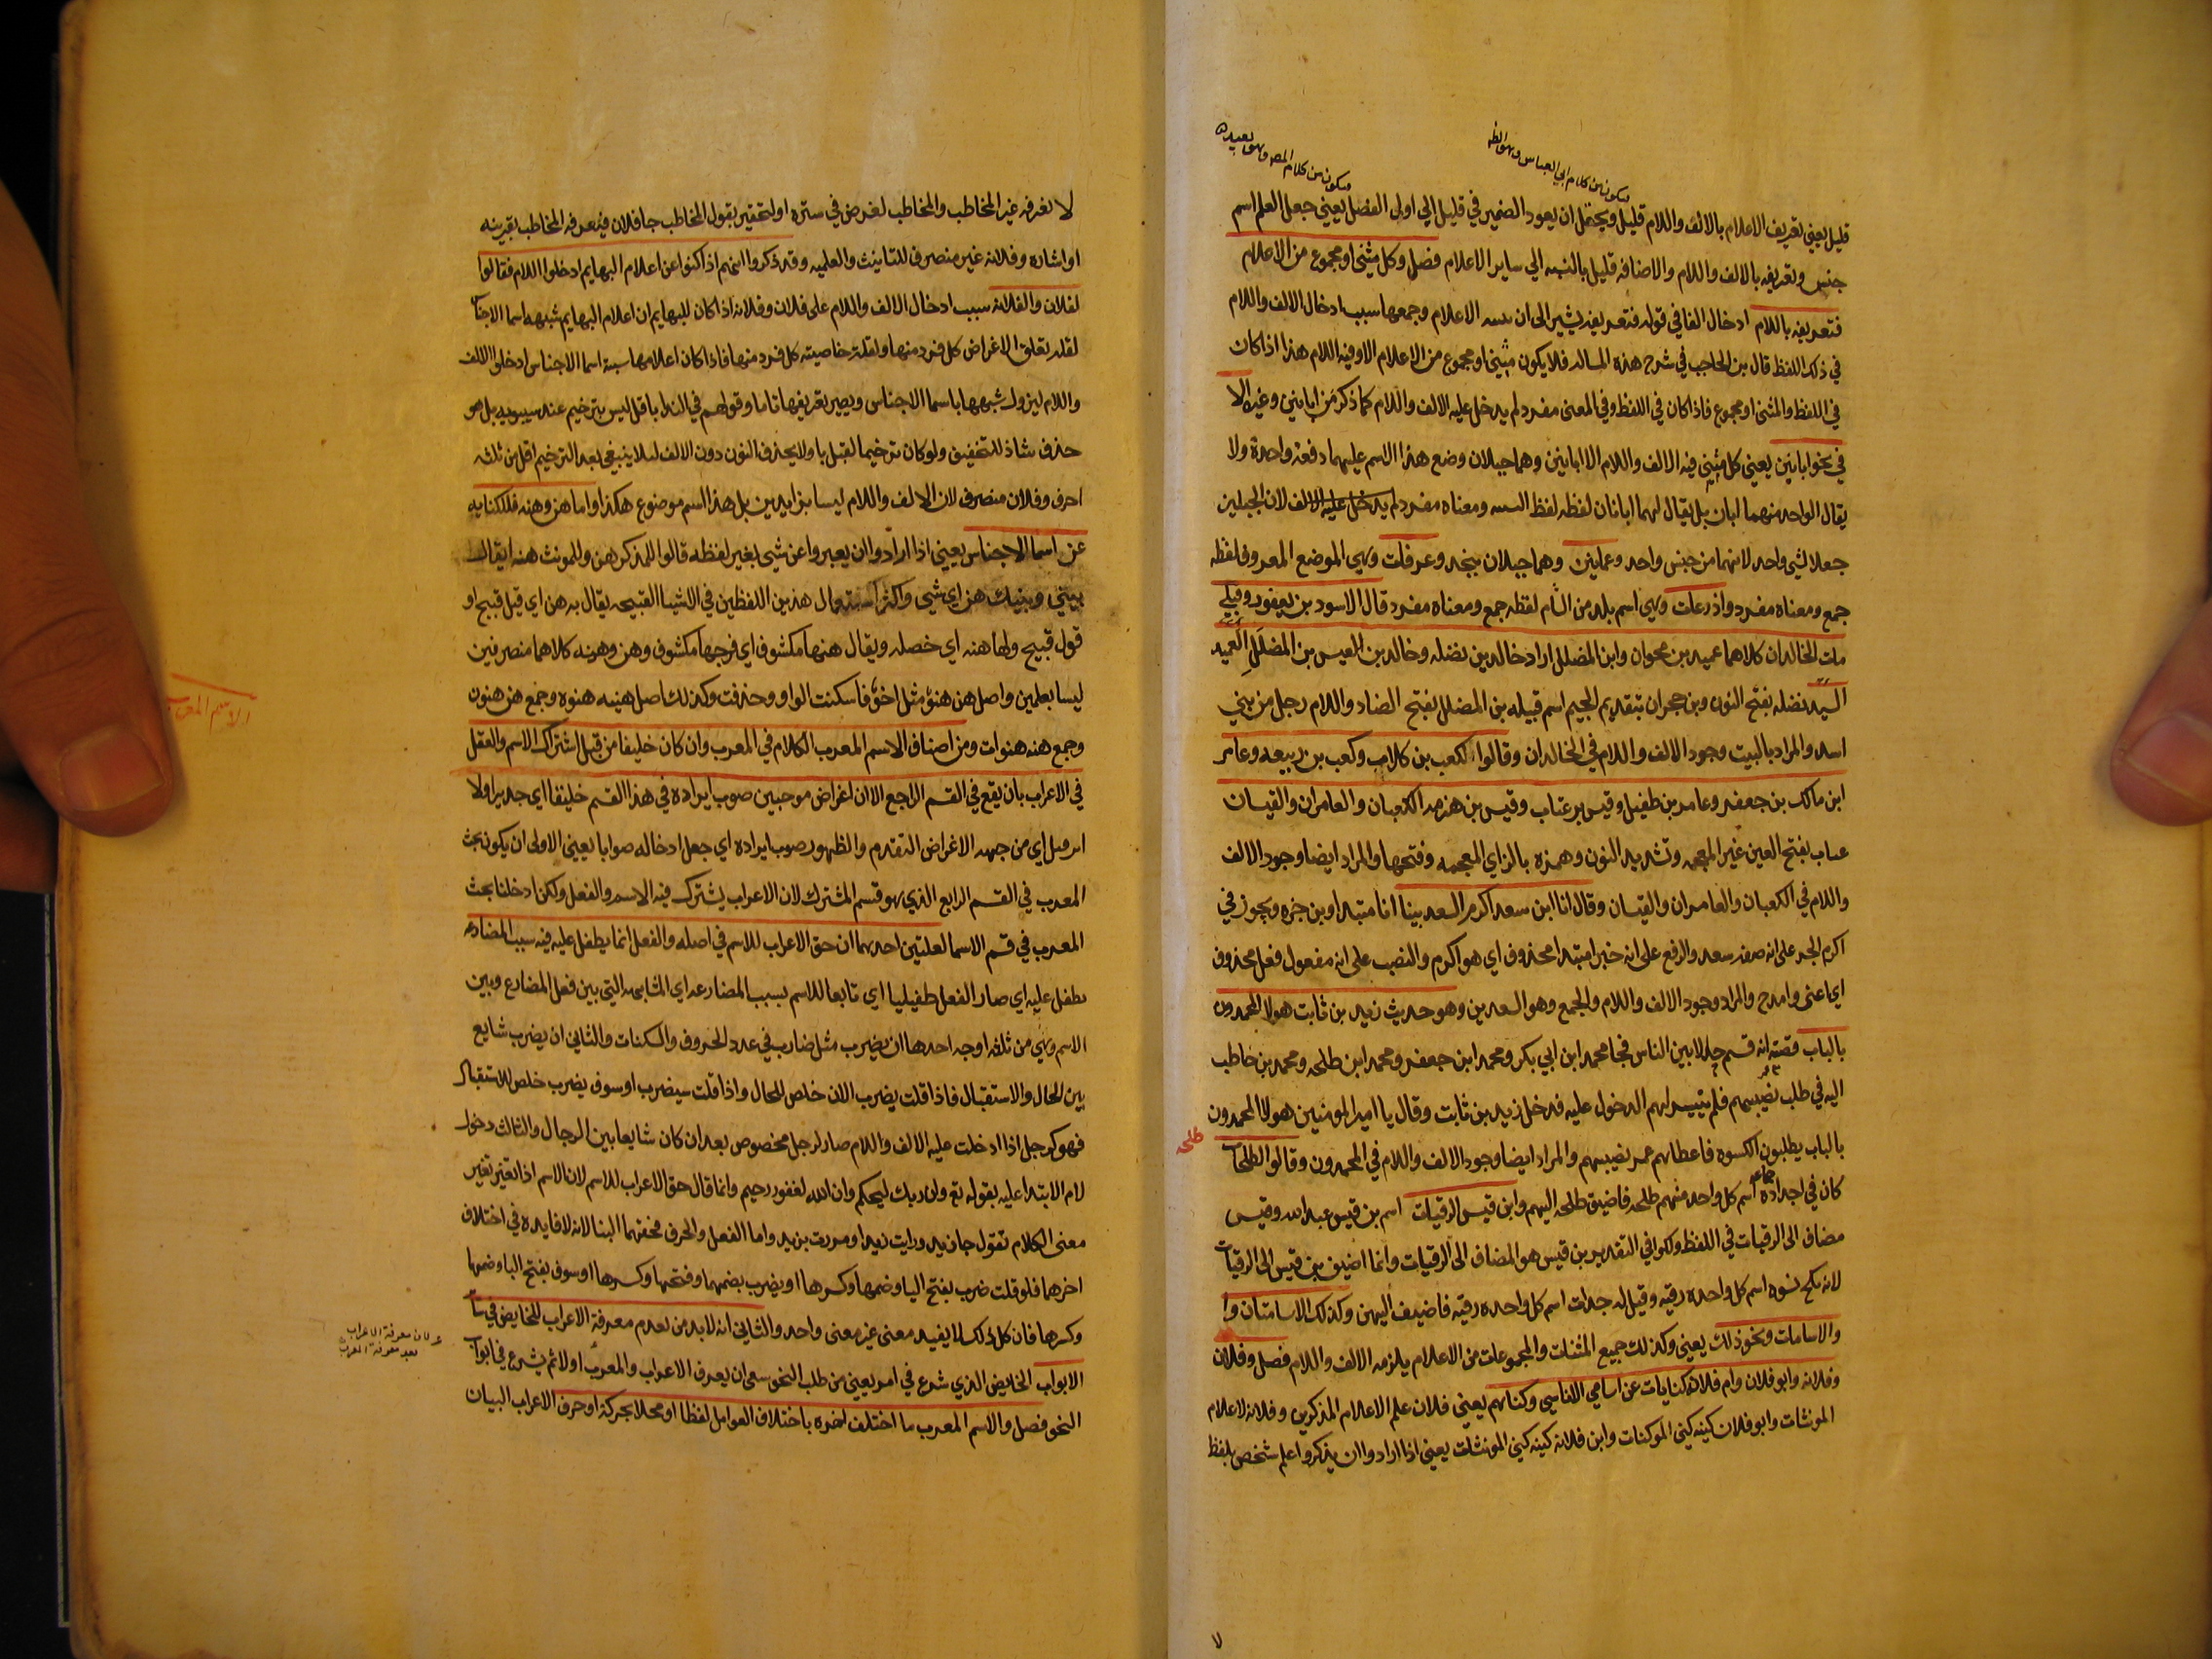 ويكون من كلام ابي العباس وهو الظ
ويكون من كلام المصـ وهو بعيد
قليل يعني تعريف الاعلام بالالف واللام قليل ويحتمل ان يعود الضمير في قليل الي اول الفصل يعني جعل العلم اسم
جنس وتعريفه بالالف واللام والاضافه قليل بالنسبه الي ساير الاعلام فصل وكل مثنى او مجموع من الاعلام
فتعريفه باللام ادخال الفا في قوله فتعريفه يشير الى ان تثنيه الاعلام وجمعها سبب ادخال الالف واللام
في ذلك اللفظ قال بن الحاجب في شرح هذه المساله فلا يكون مثنى او مجموع من الاعلام الا وفيه اللام هذا اذا كان
في اللفظ والمثنى او مجموع فاذا كان في اللفظ وفي المعنى مفرد لم يدخل عليه الالف واللام كما ذكر من ابانين وغيره الا
في نحو ابانين يعني كل مثنى فيه الالف واللام الا ابانين وهما جبلان وضع هذا الاسم عليهما دفعة واحدة ولا
يقال لواحد منهما ابان بل يقال لهما ابانان لفظه لفظ التثنيه ومعناه مفرد لم يدخل عليه الالف لان الجبلين
جعلا لشي واحد لانهما من جنس واحد وعمايتين وهما جبلان بنجد وعرفات وهي الموضع المعروف لفظه
جمع ومعناه مفرد واذرعات وهي اسم بلد من الشام لفظه جمع ومعناه مفرد قال الاسود بن يعفور وقبلي
مات الخالدان كلاهما عميد بن جحوان وابن المضلل اراد خالد بن نضله وخالد بن القيس بن المضلل العميد
السيد نضله بفتح النون وبن جحران بتقديم الجيم اسم قبيله بن المضلل بفتح الضاد واللام رجل من بني
اسد والمراد بالبيت وجود الالف واللام في الخالدان وقالوا لكعب بن كلاب وكعب بن ربيعه وعامر
ابن مالك بن جعفر وعامر بن طفيل وقيس بن عتاب وقيس بن هزمه الكعبان والعامران والقيسان
عتاب بفتح العين غير المعجمه وتشديد النون وهمزه بالزاي المعجمه وفتحها والمراد ايضا وجود الالف
واللام في الكعبان والعامران والقيسان وقال انا ابن سعد اكرم السعدينا انا مبتدا وبن خبره ويجوز في
اكرم الجر على انه صفه سعد والرفع على انه خبر مبتدا محذوف اي هو اكرم والنصب على انه مفعول فعل محذوف
اي اعنى وامدح والمراد وجود الالف واللام والجمع وهو السعدين وهو حديث زيد بن ثابت هولا المحمدون
بالباب قصته انه قسم حللا بين الناس فجا محمد ابن ابي بكر ومحمد ابن جعفر ومحمد ابن طلحه ومحمد بن حاطب
اليه في طلب نصيبهم فلم يتيسر لهم الدخول عليه فدخل زيد بن ثابت وقال يا امير المومنين هولا المحمدون
بالباب يطلبون الكسوه فاعطاهم عمر نصيبهم والمراد ايضا وجود الالف واللام في المحمدون وقالوا الطلحات
طلحه
كان في اجداده جماعه اسم كل واحد منهم طلحه فاضيق طلحه اليهم وابن قيس الرقيات اسم بن قيس عبد الله وقيس
مضاف الى الرقيات في اللفظ ولكن في التقدير بن قيس هو المضاف الى الرقيات وانما اضيف بن قيس الى الرقيات
لانه نكح نسوه اسم كل واحده رقيه وقيل له جدات اسم كل واحده رقيه فاضيف اليهن وكذلك الاسامتان وا
والاسامات ونحو ذلك يعني وكذلك جميع المثنات والمجموعات من الاعلام يلزمه الالف واللام فصل وفلان
وفلانه وابو فلان وام فلانه كنايات عن اسامي الاناسي وكناهم يعني فلان علم الاعلام المذكرين وفلانه لاعلام
المونثات وابو فلان كنيه كنى المركنات وابن فلانه كنيه كنى المونثات يعني اذا ارادوا ان يذكروا علم شخص بلفظ
لا
لا يعرفه غير المخاطب والمخاطب لغرض في ستره او لتحقير يقول المخاطب جا فلان فيعرفه المخاطب بقرينه
او اشاره وفلانه غير منصرف للتانيث والعلميه وقد ذكروا انهم اذا كنوا عن اعلام البهايم ادخلوا اللام فقالوا
لفلان والفلانه سبب ادخال الالف واللام على فلان وفلانه اذا كان للبهايم ان اعلام البهايم شبهه اسما الاجناس
لقله تعلق الاغراض كل فرد منها ولقلة خاصيته كل فرد منها فاذا كان اعلامها اسما الاجناس ادخلوا الالف
واللام ليزول شبهها باسما الاجناس ويصير تعريفها تاما وقولهم في الندا يا فل ليس بترخيم عند سيبويه بل هو
حذف شاذ للتخفيف ولو كان ترخيما لقيل يا ولا بحذف النون دون الالف ليلا يبقى بعد الترخيم اقل من ثلثه
احرف وفلان منصرف لان الالف واللام ليسا بزايدين بل هذا اسم موضوع هكذا واما هن وهنه فللكنايه
عن اسما الاجناس يعني اذا ارادوا ان يعبروا عن شي بغير لفظه قالوا للمذكر هن وللمونث هنه يقال
بيني وبينك هن اي شي واكثر استعمال هذين اللفظين في الاشيا القبيحه يقال به هن اي قيل قبيح او
قول قبيح ولها هنه اي خصله ويقال هنها مكشوف اي فرجها مكشوف وهن وهنه كلاهما منصرفين
ليسا بعلمين واصل هن هنو مثل اخو فاسكنت الواو وحذفت وكذلك اصل هنيه هنوه وجمع هن هنون
وجمع هنه هنوات ومن اصناف الاسم المعرب الكلام في المعرب وان كان خليقا من قبل اشتراك الاسم والفعل
الاسم المعرب
في الاعراب بان يقع في القسم الراجع الا ان اعراض موجبين صوب ايراده في هذا القسم خليقا اي جديرا ولا
من قبل اي من جهه الاغراض التقدم والظهور صوب ايراده اي جعل ادخاله صوابا يعني الاولى ان يكون بحث
المعرب في القسم الرابع الذي هو قسم المشترك لان الاعراب يشترك فيه الاسم والفعل ولكن ادخلنا بحث
المعرب في قسم الاسما لعلتين احدهما ان حق الاعراب للاسم في اصله والفعل انما يطفل عليه فيه سبب المضارعه
يطفل عليه اي صار الفعل طفيليا اي تابعا للاسم بسبب المضارعه اي المشابهه التي بين فعل المضارع وبين
الاسم وهي من ثلثه اوجه احدها ان يضرب مثل ضارب في عدد الحروف والسكنات والثاني ان يضرب شايع
بين الحال والاستقبال فاذا قلت يضرب الان خلص للحال واذا قلت سيضرب او سوف يضرب خلص للاستقبال
فهو كرجل اذا ادخلت عليه الالف واللام صار لرجل مخصوص بعد ان كان شايعا بين الرجال والثالث دخول
لام الابتدا عليه بقوله تع وان ربك ليحكم وان الله لغفور رحيم وانما قال حق الاعراب للاسم لان الاسم اذا تغير تغير
معنى الكلام تقول جا زيد ورايت زيدا ومررت بزيد واما الفعل والحرف فحقهما البنا لانه لا فايده في اختلاف
اخرهما فلو قلت ضرب بفتح البا وضمها وكسرها او يضرب بضمها وفتحها وكسرها او سوف بفتح الفا وضمها
وكسرها فان كل ذلك لا يفيد معنى غير معنى واحد والثاني انه لا بد من تقدم معرفة الاعراب للخايض في سا
الابواب الخايض الذي شرع في امر يعني من طلب النحو سعى ان يعرف الاعراب والمعرب اولا ثم يشرع في ابواب
عرفان معرفة الاعراب
بعد معرفة المعرب
النحو فصل والاسم المعرب ما اختلف اخره باختلاف العوامل لفظا او محلا بحركة او حرف الاعراب البيان